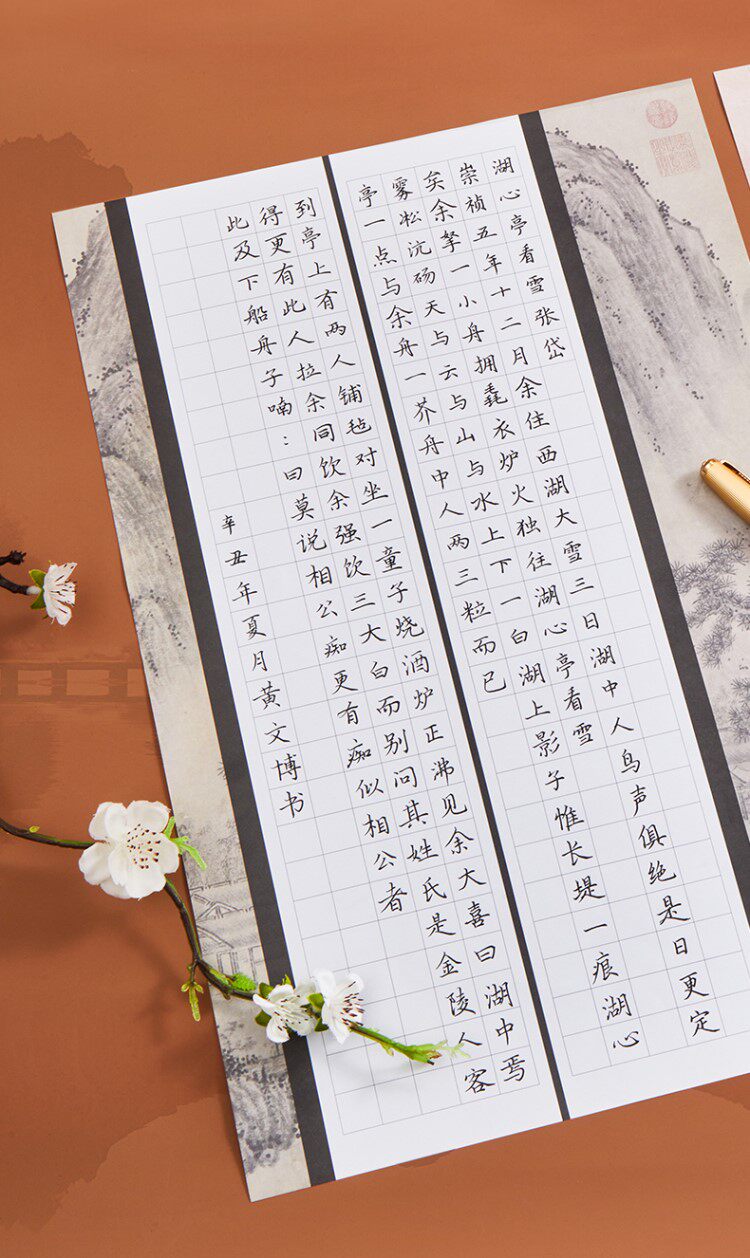 湖心亭看雪张岱
崇祯五年十二月余住西湖大雪三日湖中人鸟声俱绝是日更定
矣余拏一小舟拥毳衣炉火独往湖心亭看雪
雾凇沆砀天与云与山与水上下一白湖上影子惟长堤一痕湖心
亭一点与余舟一芥舟中人两三粒而已
到亭上有两人铺毡对坐一童子烧酒炉正沸见余大喜曰湖中焉
得更有此人拉余同饮余强饮三大白而别问其姓氏是金陵人客
此及下船舟子喃：曰莫说相公痴更有痴似相公者
辛丑年夏月黄文博书